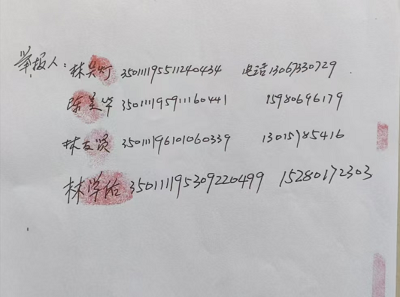 举报人：林灯 350111195511240434 电话13067330729
陈美华 350111195911160441 15980696179
林友贤 350111196101060339 13015985416
林学 350111195309220499 15280172303